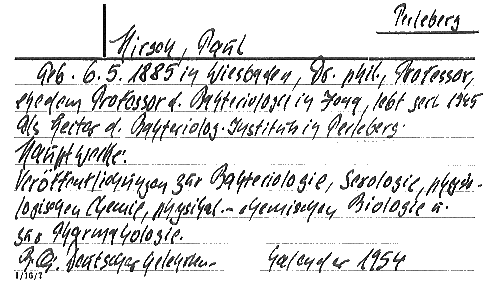 Perleberg
Hirsch, Paul
Geb. 6.5.1885 in Wiesbaden, Dr. phil., Professor,
ehedem Professor d. Bakteriologie in Jena, lebt seit 1945
als Leiter d. Bakteriolog. Instituts in Perleberg.
Hauptwerke:
Veröffentlichungen zur Bakteriologie, Serologie, physio-
logischen Chemie, physikal.-chemischen Biologie u.
zur Pharmakologie.
Deutscher Gelehrten- Kalender 1954
1/16/7